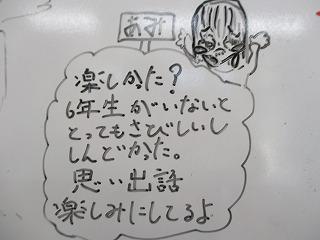 あみ
楽しかった?
6年生がいないと
とってもさびしいし
しんどかった。
思い出話
楽しみにしてるよ